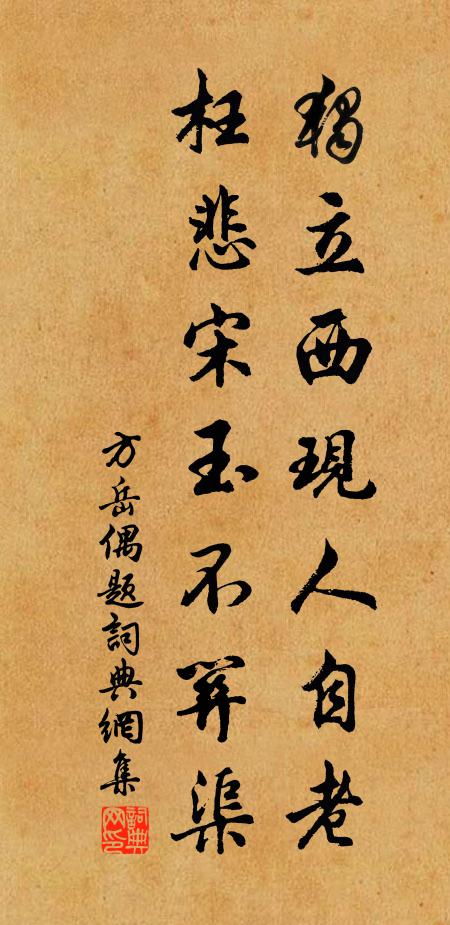 獨立西現人自老
枉悲宋玉不關渠
方岳偶題詞典網集
詞典网印